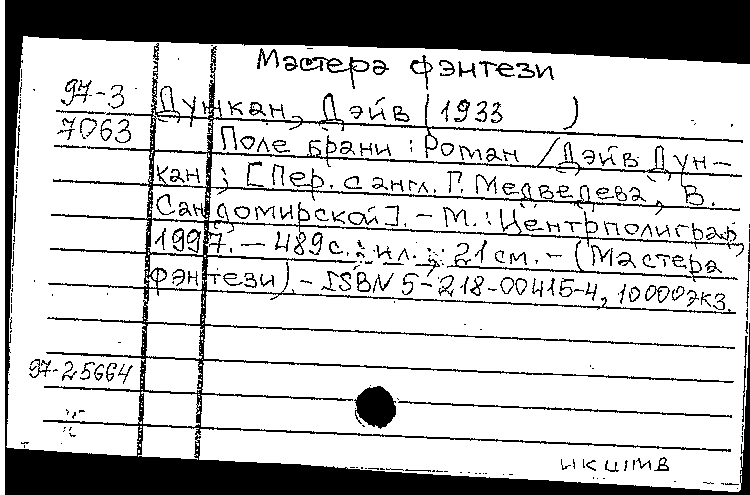 Мастера фэнтези
97-3 Дункан, Дэйв (1933 )
7063 Поле брани : Роман / Дэйв Дун-
кан ; [Пер. с англ. Г. Медведева, В.
Сандомирской]. - М. : Центрполиграф,
1997. - 489 с. : ил. ; 21 см. - (Мастера
фэнтези). - ISBN 5-218-00415-4, 10000 экз.
97-25664